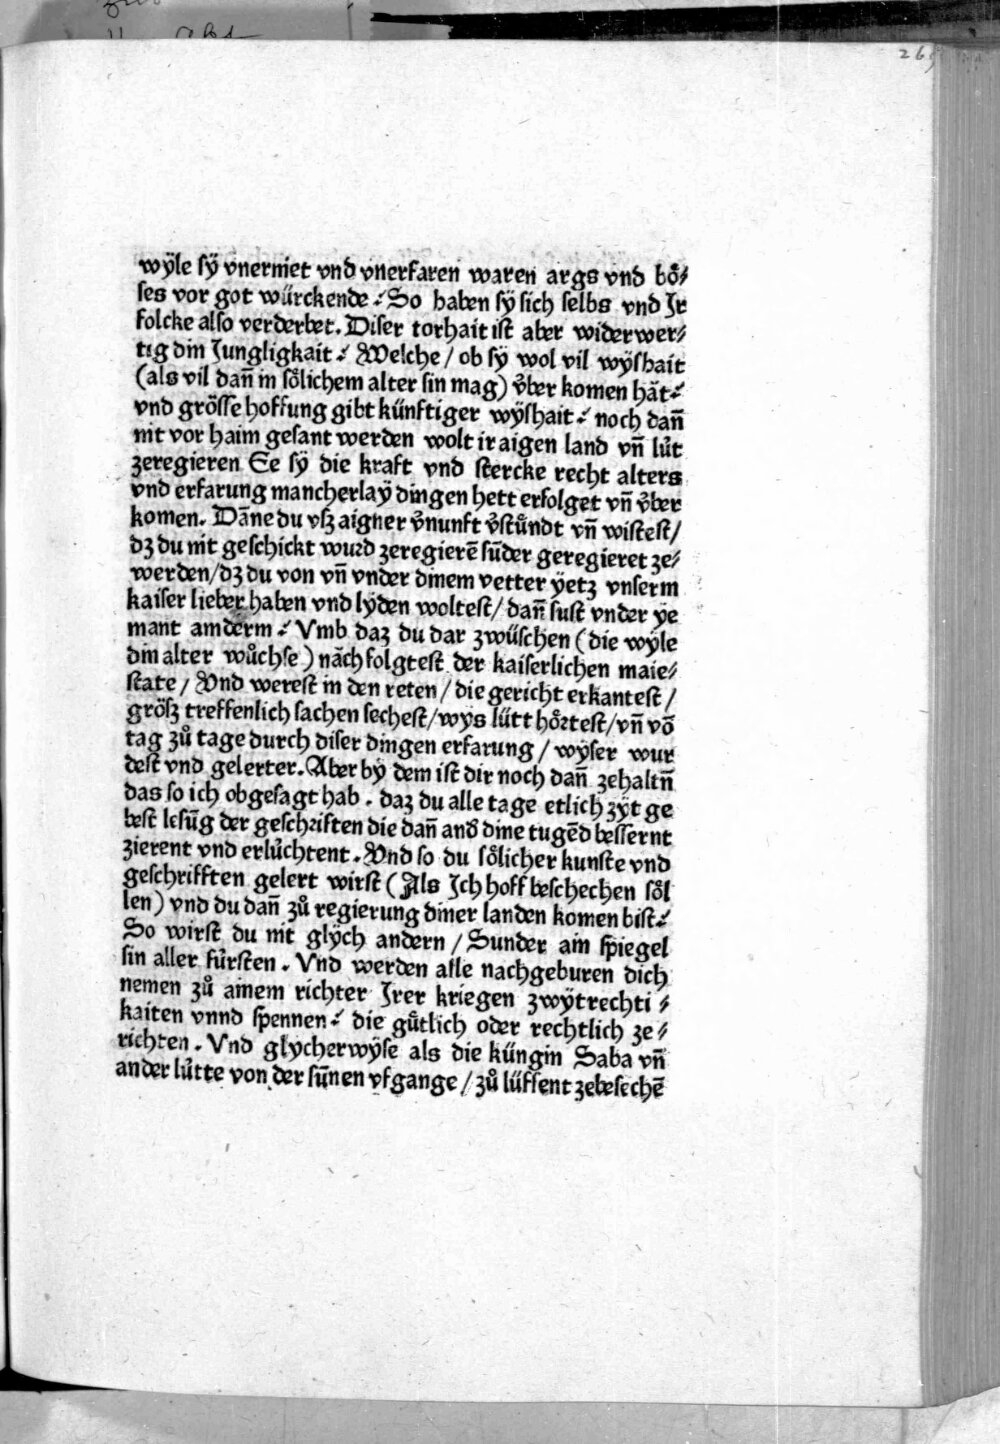 265
wÿle sÿ vnerniet vnd vnerfaren waren args vnd bö⸗
ses vor got würckende⸗́ So haben sÿ sich selbs vnd Jr
folcke also verderbet. Diser torhait ist aber widerwer⸗
tig din Jungligkait⸗́ Welche / ob sÿ wol vil wÿshait
(als vil dañ in sölichem alter sin mag) v̉ber komen hät⸗́
vnd grösse hoffung gibt künftiger wÿshait⸗́ noch dañ
nit vor haim gesant werden wolt ir aigen land vñ lu̇t
zeregieren Ee sÿ die kraft vnd stercke recht alters
vnd erfarung mancherlaÿ dingen hett erfolget vñ v̉ber
komen. Dãne du vsz aigner v̉nunft v̉stůndt vñ wistest /
dz du nit geschickt wurd zeregierẽ sũder geregieret ze⸗
werden / dz du von vñ vnder dinem vetter ÿetz vnserm
kaiser lieber haben vnd lÿden woltest / dañ sust vnder ÿe
mant amderm⸗́ Vmb daz du dar zwüschen (die wÿle
din alter wůchse) nächfolgtest der kaiserlichen maie⸗
state / Vnd werest in den reten / die gericht erkantest /
grösz treffenlich sachen sechest / wys lütt hörtest / vñ võ
tag zů tage durch diser dingen erfarung / wÿser wur
dest vnd gelerter. Aber bÿ dem ist dir noch dañ zehaltñ
das so ich obgesagt hab. daz du alle tage etlich zÿt ge
best lesũg der geschriften die dañ and̉ dine tugẽd bessernt
zierent vnd erlu̇chtent. Vnd so du sölicher kunste vnd
geschrifften gelert wirst (Als Jch hoff beschechen söl
len) vnd du dañ zů regierung diner landen komen bist⸗́
So wirst du nit glÿch andern / Sunder ain spiegel
sin aller fu̇rsten. Vnd werden alle nachgeburen dich
nemen zů ainem richter Jrer kriegen zwÿtrechti⸗
kaiten vnnd spennen⸗́ die gu̇tlich oder rechtlich ze⸗
richten. Vnd glycherwÿse als die küngin Saba vñ
ander lu̇tte von der sũnen vfgange / zů lüssent zebesechẽ